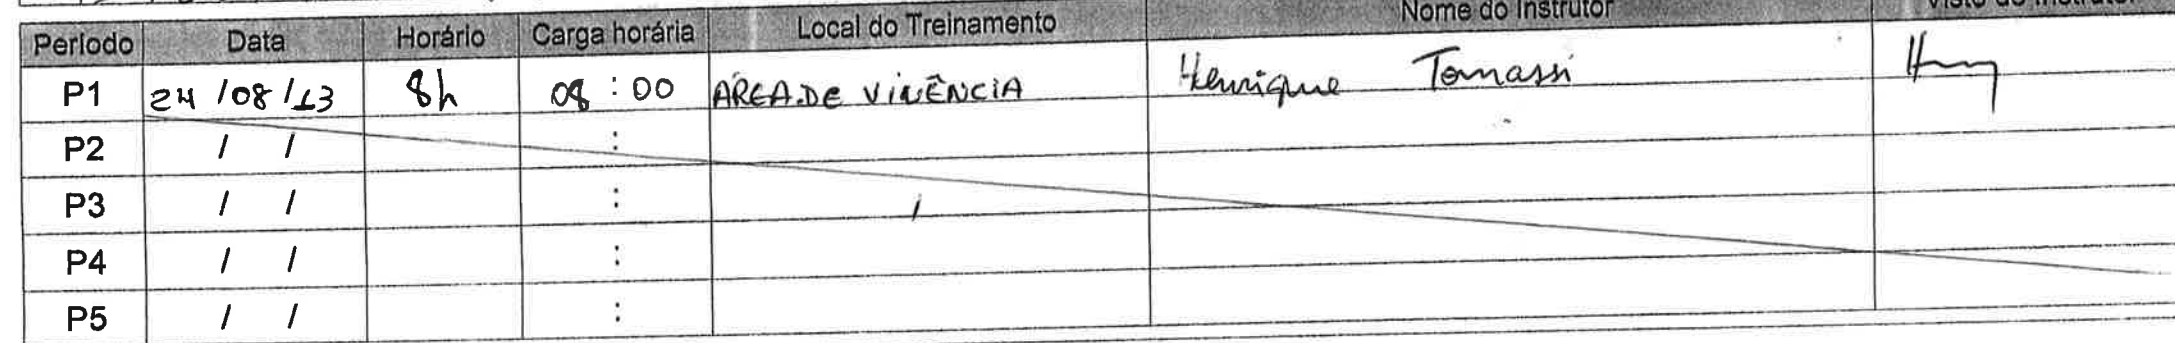 Período Data Horário Carga horária Local do Treinamento Nome do Instrutor Visto do Instrutor
P1 24/08/13 8h 08:00 ÁREA DE VIVÊNCIA Henrique Tomassi
P2 / / :
P3 / / :
P4 / / :
P5 / / :